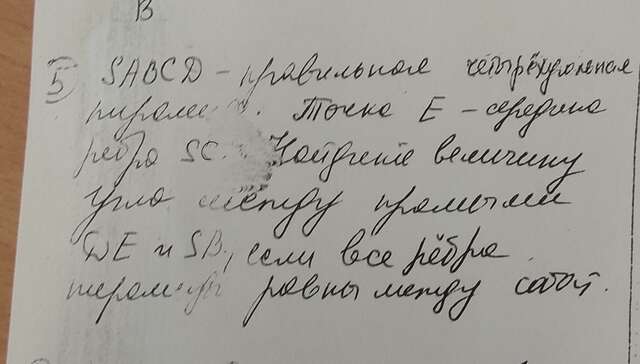 В
5) SABCD - правильная четырёхугольная
пирамида. Точка E - середина
ребра SC. Найдите величину
угла между прямыми
DE и SB, если все рёбра
пирамиды равны между собой.